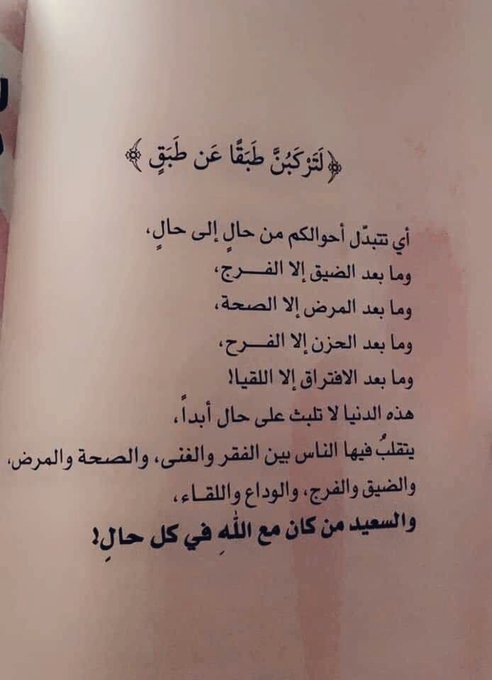 ﴿لَتَرْكَبُنَّ طَبَقًا عَن طَبَقٍ﴾
أي تتبدّل أحوالكم من حالٍ إلى حالٍ،
وما بعد الضيق إلا الفـــرج،
وما بعد المرض إلا الصحة،
وما بعد الحزن إلا الفـــرح،
وما بعد الافتراق إلا اللقيا!
هذه الدنيا لا تلبث على حال أبداً،
يتقلبُ فيها الناس بين الفقر والغنى، والصحة والمرض،
والضيق والفرج، والوداع واللقـاء،
والسعيد من كان مع اللهِ في كل حالِ!